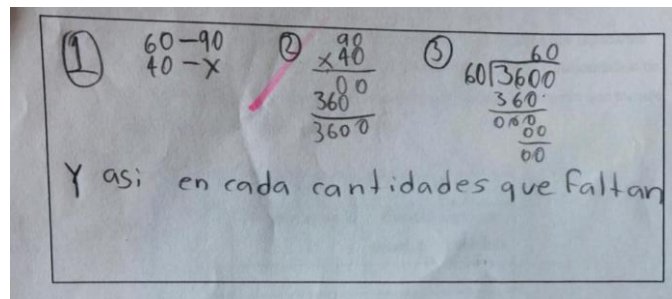 ① 60-90
40-x
② 90
x40
00
360
3600
③ 60
60√3600
360
000
00
00
Y asi en cada cantidades que faltan